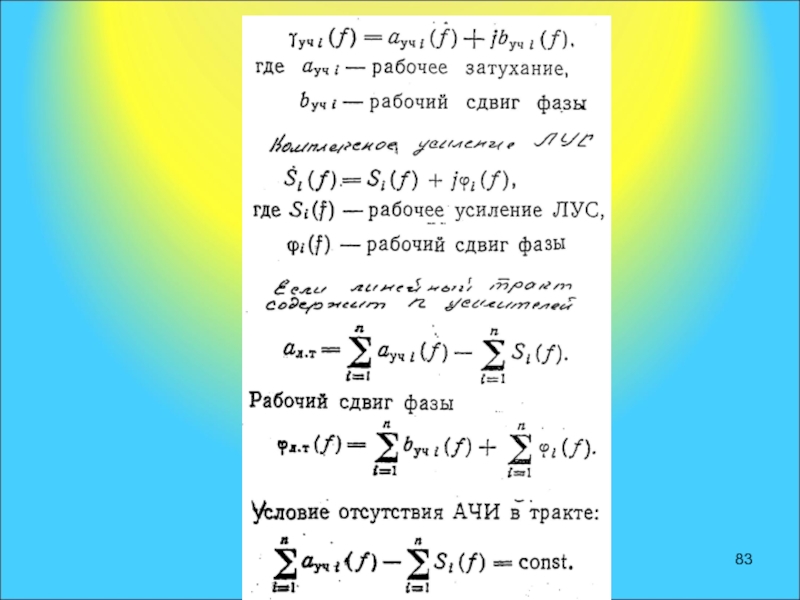 γуч i (f) = aуч i (f) + jbуч i (f),
где aуч i — рабочее затухание,
bуч i — рабочий сдвиг фазы
Комплексное усиление ЛУС
Ṡi (f) = Si (f) + jφi (f),
где Si (f) — рабочее усиление ЛУС,
φi (f) — рабочий сдвиг фазы
Если линейный тракт
содержит n усилителей
aл.т = ∑ⁿᵢ₌₁ aуч i (f) — ∑ⁿᵢ₌₁ Si (f).
Рабочий сдвиг фазы
φл.т (f) = ∑ⁿᵢ₌₁ bуч i (f) + ∑ⁿᵢ₌₁ φi (f).
Условие отсутствия АЧИ в тракте:
∑ⁿᵢ₌₁ aуч i (f) — ∑ⁿᵢ₌₁ Si (f) = const.
83